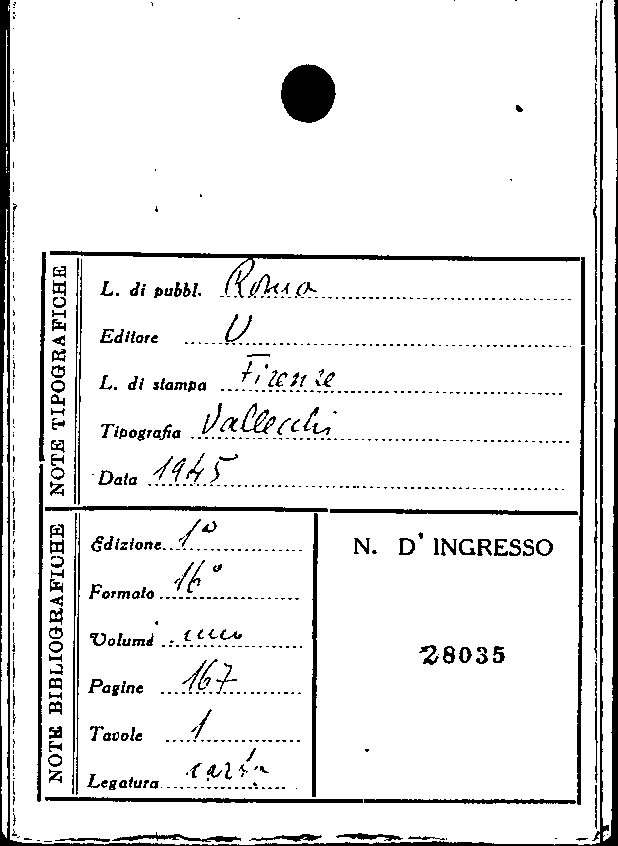 NOTE TIPOGRAFICHE
L. di pubbl. Roma
Editore U
L. di stampa Firenze
Tipografia Vallecchi
Data 1945
NOTE BIBLIOGRAFICHE
Edizione 1ª
Formato 16°
Volumi uno
Pagine 167
Tavole 1
Legatura carta
N. D' INGRESSO
28035